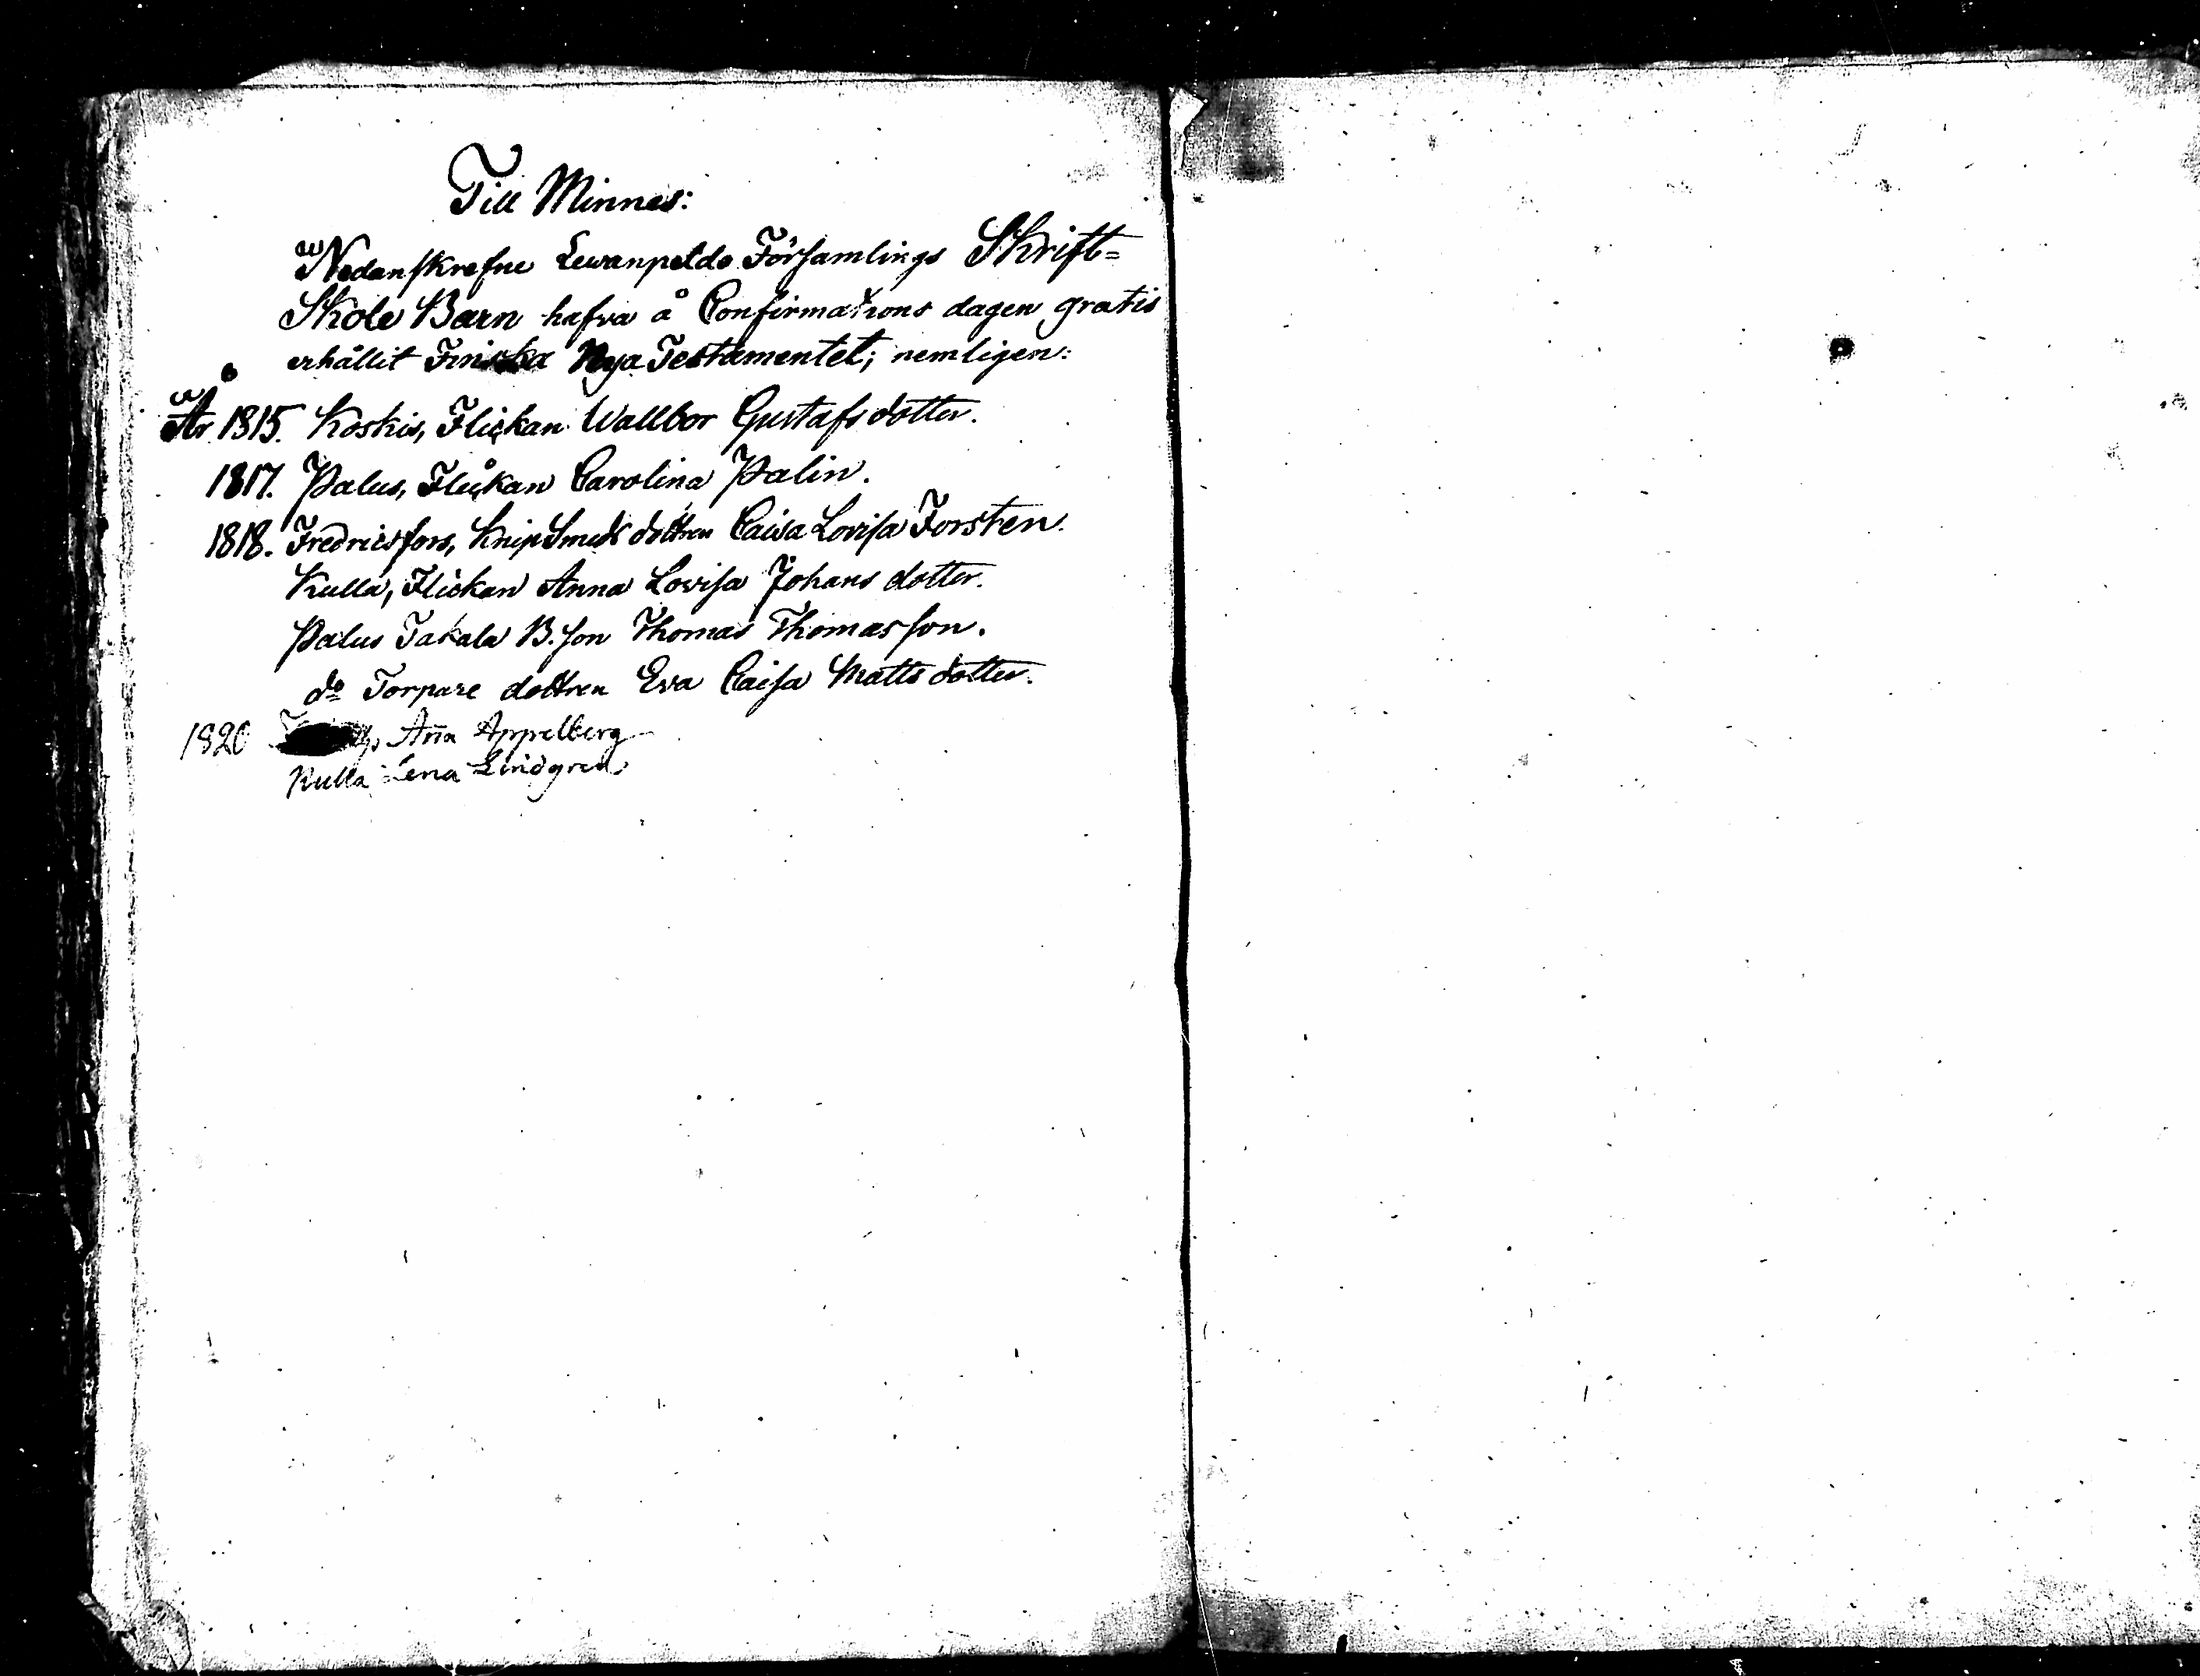 Till Minnes:
Nedanskrefne Lewanpeldo Församlings Skrift=
Skole Barn hafva å Confirmations dagen gratis
erhållit Finska Nya Testamentet; nemligen:
År 1815. Koskis, Flickan Wallbor Gustafs dotter.
1817. Palus, Flickan Carolina Palin.
1818. Fredricsfors, KnipSmeds dottren Caisa Lovisa Forsten.
Kulla, Flickan Anna Lovisa Johans dotter.
Palus Takala B. son Thomas Thomasson.
do Torpare dottren Eva Caisa Matts dotter.
1820 Ana Appelberg
Kulla Lena Lindgren